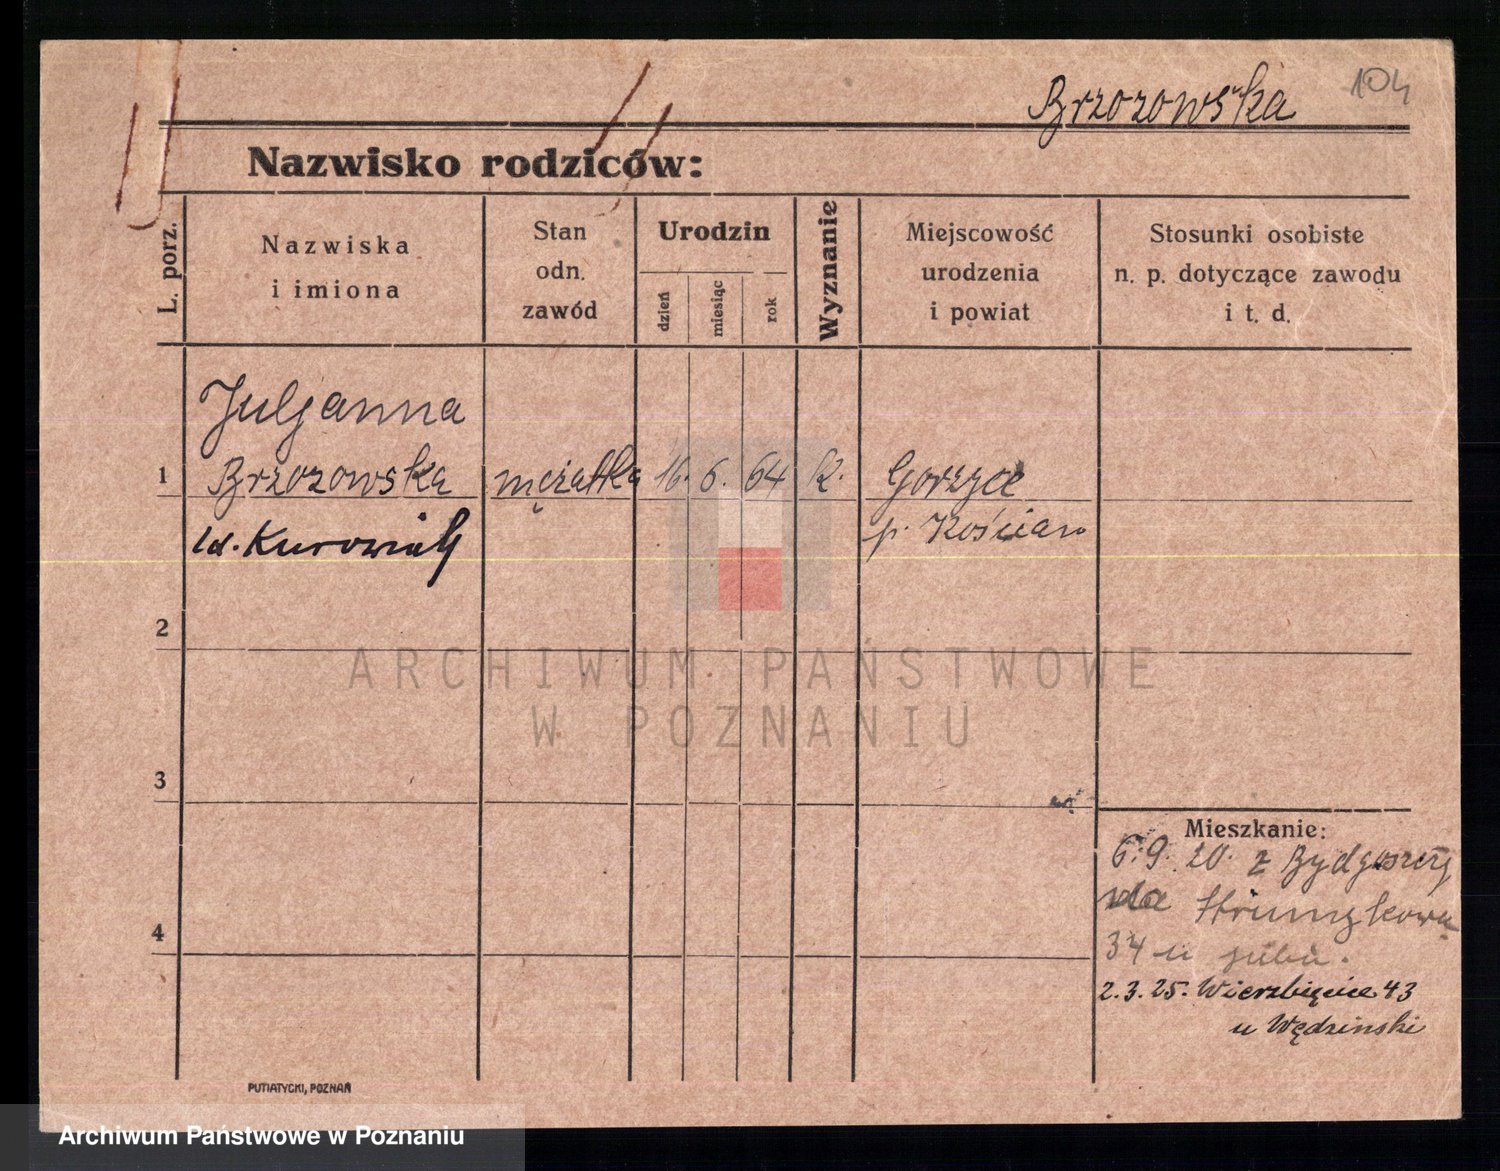 Brzozowska 104
Nazwisko rodziców:
L. porz.
Nazwiska
i imiona
Stan
odn.
zawód
Urodzin
dzień
miesiąc
rok
Wyznanie
Miejscowość
urodzenia
i powiat
Stosunki osobiste
n. p. dotyczące zawodu
i t. d.
Juljanna
1 Brzozowska mężatka 16. 6. 64 k. Gorzyce
p. Kościan
Kurowiak
2
3
4
ARCHIWUM PAŃSTWOWE
W POZNANIU
Mieszkanie:
6. 9. 20. z Bydgoszczy
34 u
2.3.25. Wierzbięcice 43
u Wędzinski
PUTIATYCKI, POZNAŃ
Archiwum Państwowe w Poznaniu